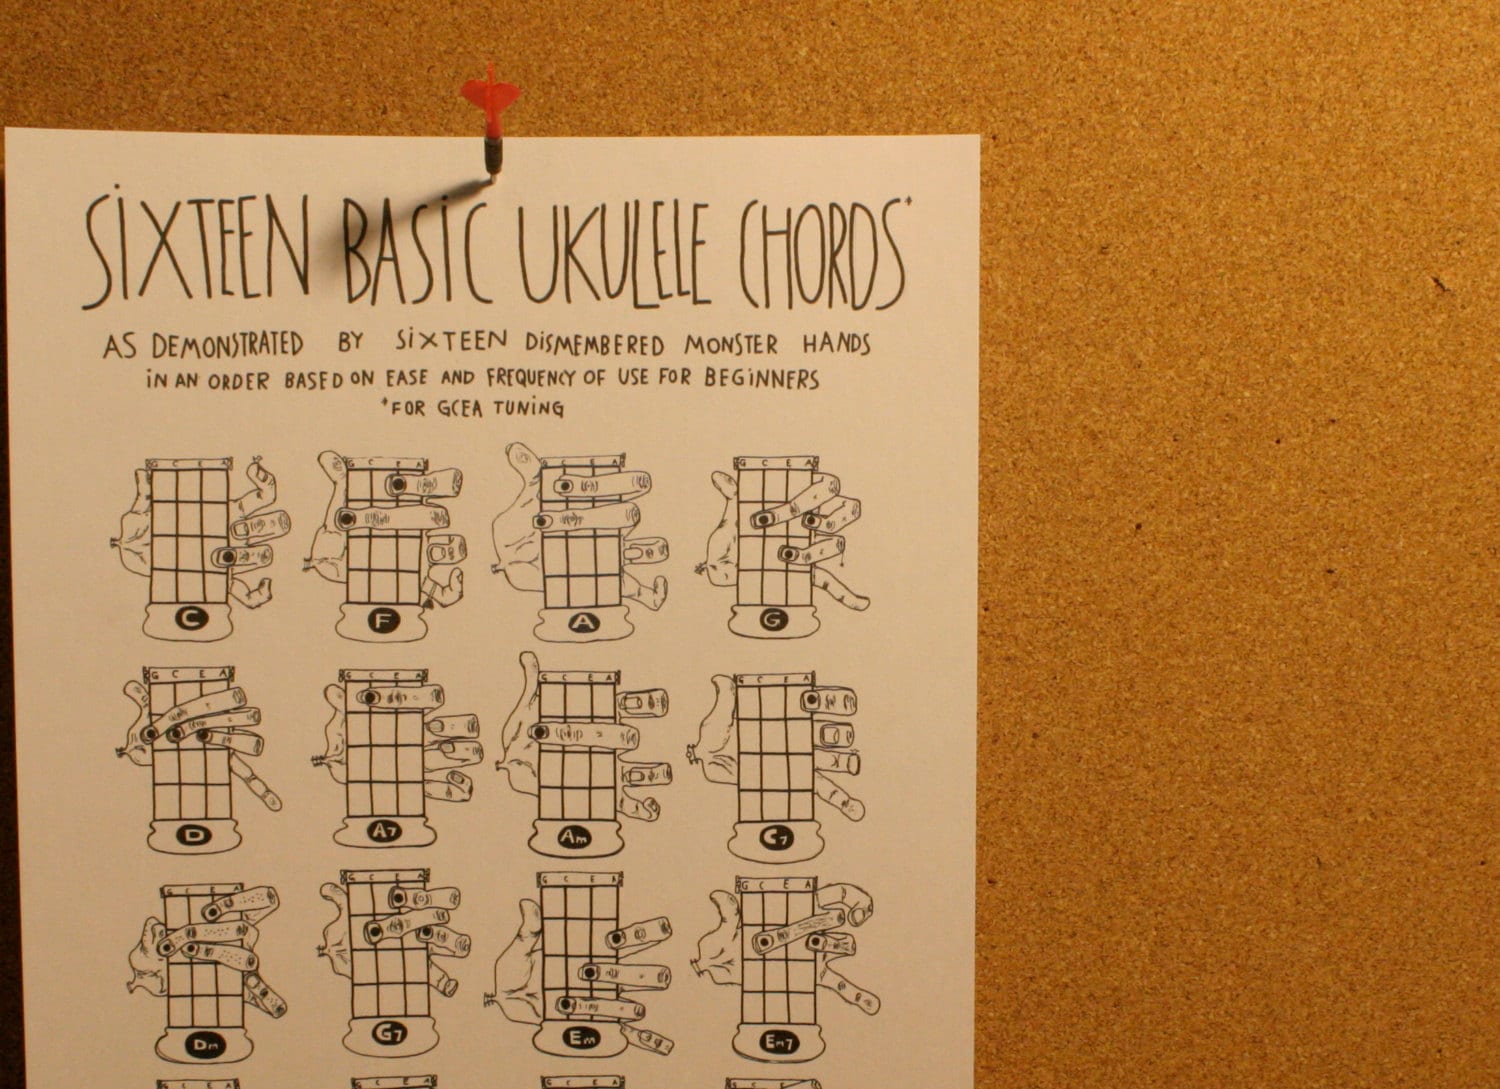 SIXTEEN BASIC UKULELE CHORDS*
AS DEMONSTRATED BY SIXTEEN DISMEMBERED MONSTER HANDS
IN AN ORDER BASED ON EASE AND FREQUENCY OF USE FOR BEGINNERS
*FOR GCEA TUNING
G C E A G C E A G C E A G C E A
C F A G
G C E A G C E A G C E A G C E A
D A7 Am C7
G C E A G C E A G C E A G C E A
Dm G7 Em Em7
G C E A G C E A G C E A G C E A